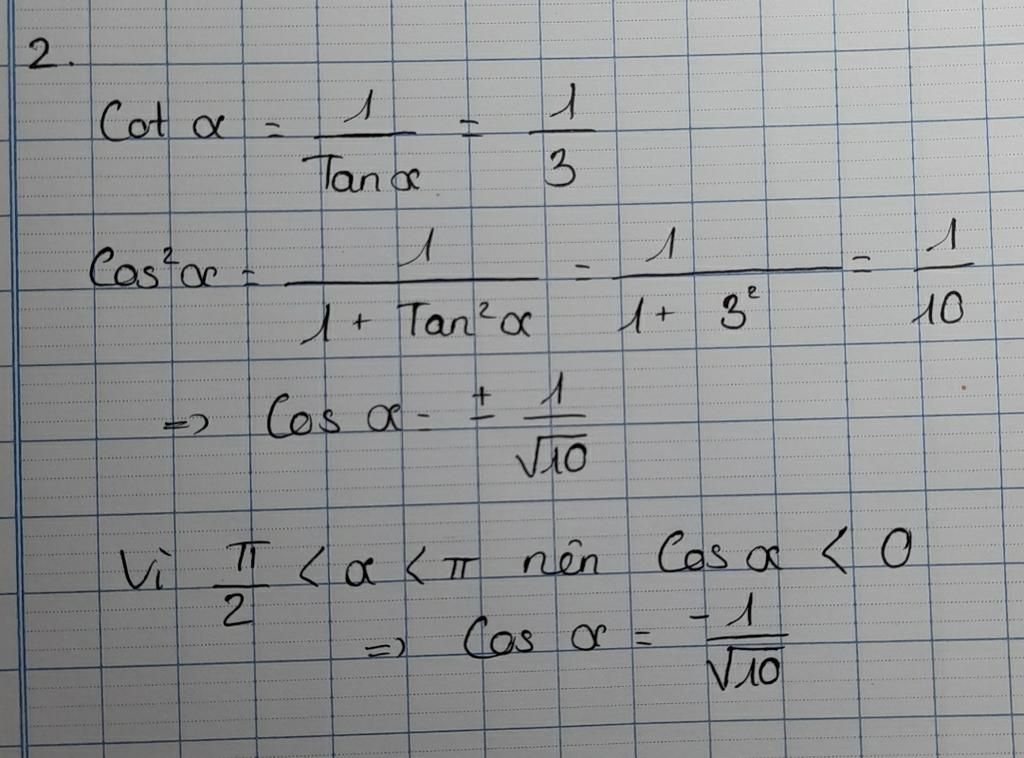 2.
Cot α = 1/Tan α = 1/3
Cos²α = 1/(1 + Tan²α) = 1/(1 + 3²) = 1/10
=> Cos α = ± 1/√10
Vì π/2 < α < π nên Cos α < 0
=> Cos α = -1/√10